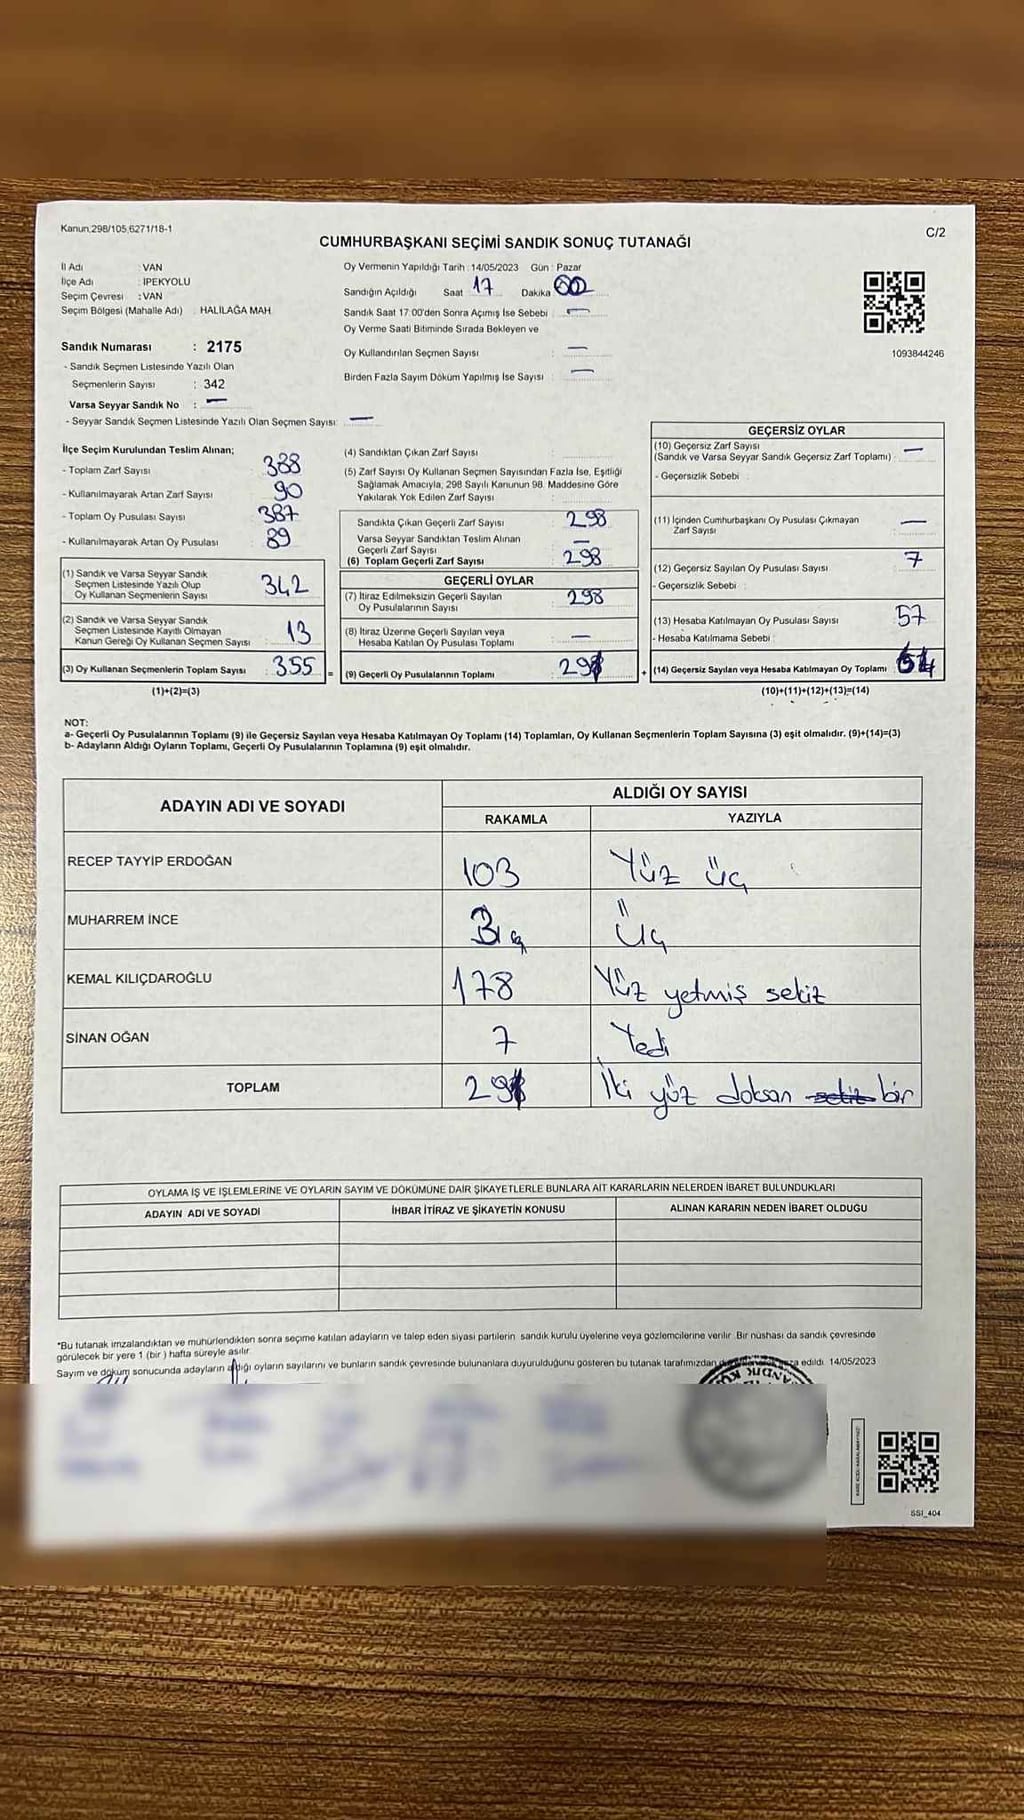 Kanun,298/105,6271/18-1
C/2
CUMHURBAŞKANI SEÇİMİ SANDIK SONUÇ TUTANAĞI
İl Adı : VAN
İlçe Adı : İPEKYOLU
Seçim Çevresi : VAN
Seçim Bölgesi (Mahalle Adı) : HALİLAĞA MAH.
Sandık Numarası : 2175
- Sandık Seçmen Listesinde Yazılı Olan
Seçmenlerin Sayısı : 342
Varsa Seyyar Sandık No : —
- Seyyar Sandık Seçmen Listesinde Yazılı Olan Seçmen Sayısı: —
Oy Vermenin Yapıldığı Tarih : 14/05/2023 Gün : Pazar
Sandığın Açıldığı Saat 17 Dakika 00
Sandık Saat 17:00'den Sonra Açımış İse Sebebi : —
Oy Verme Saati Bitiminde Sırada Bekleyen ve
Oy Kullandırılan Seçmen Sayısı : —
Birden Fazla Sayım Döküm Yapılmış İse Sayısı : —
1093844246
İlçe Seçim Kurulundan Teslim Alınan;
- Toplam Zarf Sayısı : 388
- Kullanılmayarak Artan Zarf Sayısı : 90
- Toplam Oy Pusulası Sayısı : 387
- Kullanılmayarak Artan Oy Pusulası : 89
(1) Sandık ve Varsa Seyyar Sandık
Seçmen Listesinde Yazılı Olup
Oy Kullanan Seçmenlerin Sayısı : 342
(2) Sandık ve Varsa Seyyar Sandık
Seçmen Listesinde Kayıtlı Olmayan
Kanun Gereği Oy Kullanan Seçmen Sayısı : 13
(3) Oy Kullanan Seçmenlerin Toplam Sayısı : 355
(1)+(2)=(3)
(4) Sandıktan Çıkan Zarf Sayısı :
(5) Zarf Sayısı Oy Kullanan Seçmen Sayısından Fazla İse, Eşitliği
Sağlamak Amacıyla, 298 Sayılı Kanunun 98. Maddesine Göre
Yakılarak Yok Edilen Zarf Sayısı :
Sandıkta Çıkan Geçerli Zarf Sayısı : 298
Varsa Seyyar Sandıktan Teslim Alınan
Geçerli Zarf Sayısı : —
(6) Toplam Geçerli Zarf Sayısı : 298
GEÇERLİ OYLAR
(7) İtiraz Edilmeksizin Geçerli Sayılan
Oy Pusulalarının Sayısı : 298
(8) İtiraz Üzerine Geçerli Sayılan veya
Hesaba Katılan Oy Pusulası Toplamı : —
= (9) Geçerli Oy Pusulalarının Toplamı : 291
GEÇERSİZ OYLAR
(10) Geçersiz Zarf Sayısı
(Sandık ve Varsa Seyyar Sandık Geçersiz Zarf Toplamı) : —
- Geçersizlik Sebebi :
(11) İçinden Cumhurbaşkanı Oy Pusulası Çıkmayan
Zarf Sayısı : —
(12) Geçersiz Sayılan Oy Pusulası Sayısı : 7
- Geçersizlik Sebebi :
(13) Hesaba Katılmayan Oy Pusulası Sayısı : 57
- Hesaba Katılmama Sebebi :
+ (14) Geçersiz Sayılan veya Hesaba Katılmayan Oy Toplamı : 64
(10)+(11)+(12)+(13)=(14)
NOT:
a- Geçerli Oy Pusulalarının Toplamı (9) ile Geçersiz Sayılan veya Hesaba Katılmayan Oy Toplamı (14) Toplamları, Oy Kullanan Seçmenlerin Toplam Sayısına (3) eşit olmalıdır. (9)+(14)=(3)
b- Adayların Aldığı Oyların Toplamı, Geçerli Oy Pusulalarının Toplamına (9) eşit olmalıdır.
ADAYIN ADI VE SOYADI
ALDIĞI OY SAYISI
RAKAMLA YAZIYLA
RECEP TAYYİP ERDOĞAN 103 Yüz üç
MUHARREM İNCE 3 Üç
KEMAL KILIÇDAROĞLU 178 Yüz yetmiş sekiz
SİNAN OĞAN 7 Yedi
TOPLAM 291 İki yüz doksan sekiz bir
OYLAMA İŞ VE İŞLEMLERİNE VE OYLARIN SAYIM VE DÖKÜMÜNE DAİR ŞİKAYETLERLE BUNLARA AİT KARARLARIN NELERDEN İBARET BULUNDUKLARI
ADAYIN ADI VE SOYADI İHBAR İTİRAZ VE ŞİKAYETİN KONUSU ALINAN KARARIN NEDEN İBARET OLDUĞU
*Bu tutanak imzalandıktan ve mühürlendikten sonra seçime katılan adayların ve talep eden siyasi partilerin sandık kurulu üyelerine veya gözlemcilerine verilir. Bir nüshası da sandık çevresinde
görülecek bir yere 1 (bir) hafta süreyle asılır.
Sayım ve döküm sonucunda adayların aldığı oyların sayılarını ve bunların sandık çevresinde bulunanlara duyurulduğunu gösteren bu tutanak tarafımızdan edildi. 14/05/2023
SANDIK
SSI_404